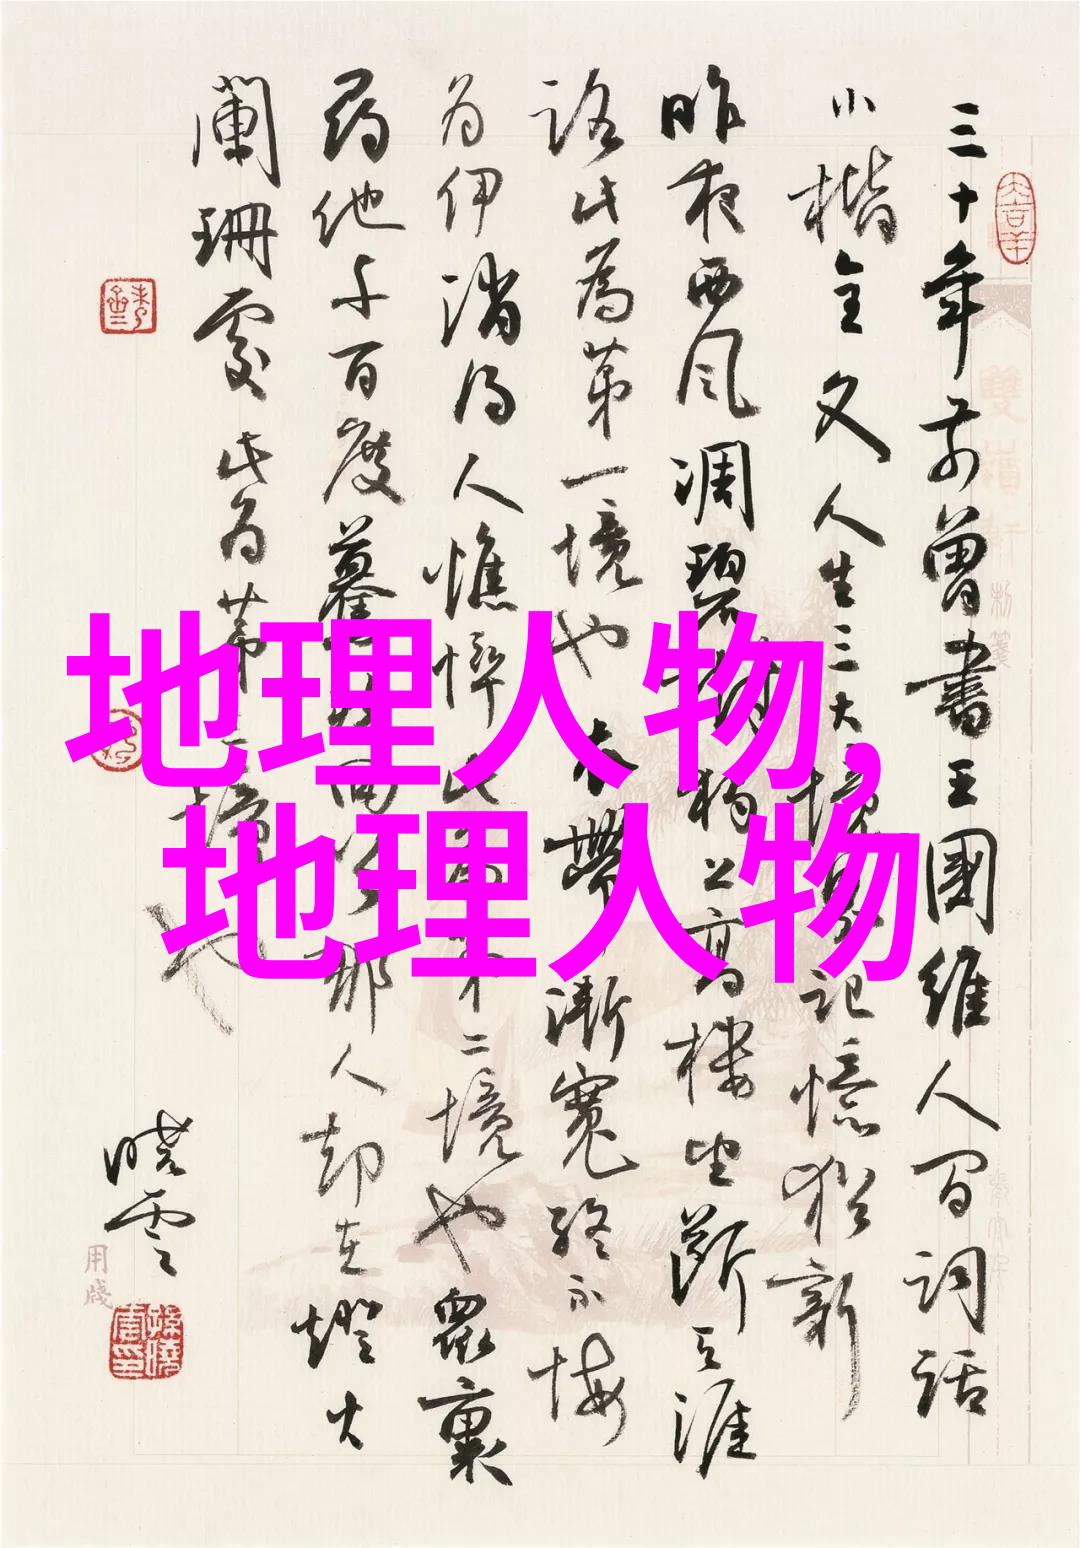 三十年前曾書王國維人间词话
小楷全文人生三大境界记憶猶新
昨夜西风凋碧樹獨上高樓望斷天涯
路此為第一境也衣帶漸寬終不悔
为伊消得人憔悴此為第二境也眾裏
尋他千百度驀然回首那人却在燈火
闌珊處此為第三境也
曉雲
用牋
地理人物,
地理人物